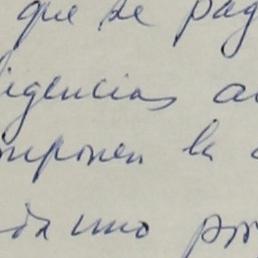 que se pag
igencias a
mponen la
da uno por